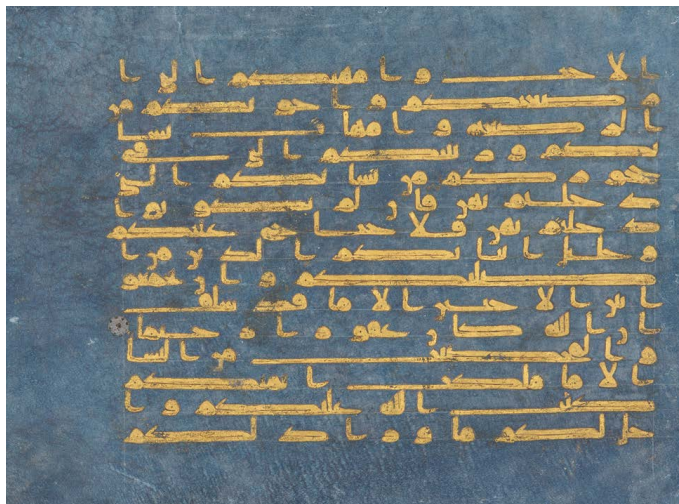 الاخت وامهتكم التي ا
رضعنكم واخوتكم من
الرضعة وامهت نسا
ئكم وربئبكم التي في
حجوركم من نسائكم التي
دخلتم بهن فان لم تكونوا
دخلتم بهن فلا جناح عليكم
وحلئل ابنائكم الذين من ا
صلبكم وان تجمعو
ا بين الاختين الا ما قد سلف
ان الله كان غفورا رحيما
والمحصنت من النسا
الا ما ملكت ايمنكم
كتب الله عليكم وا
حل لكم ما ورا ذلكم